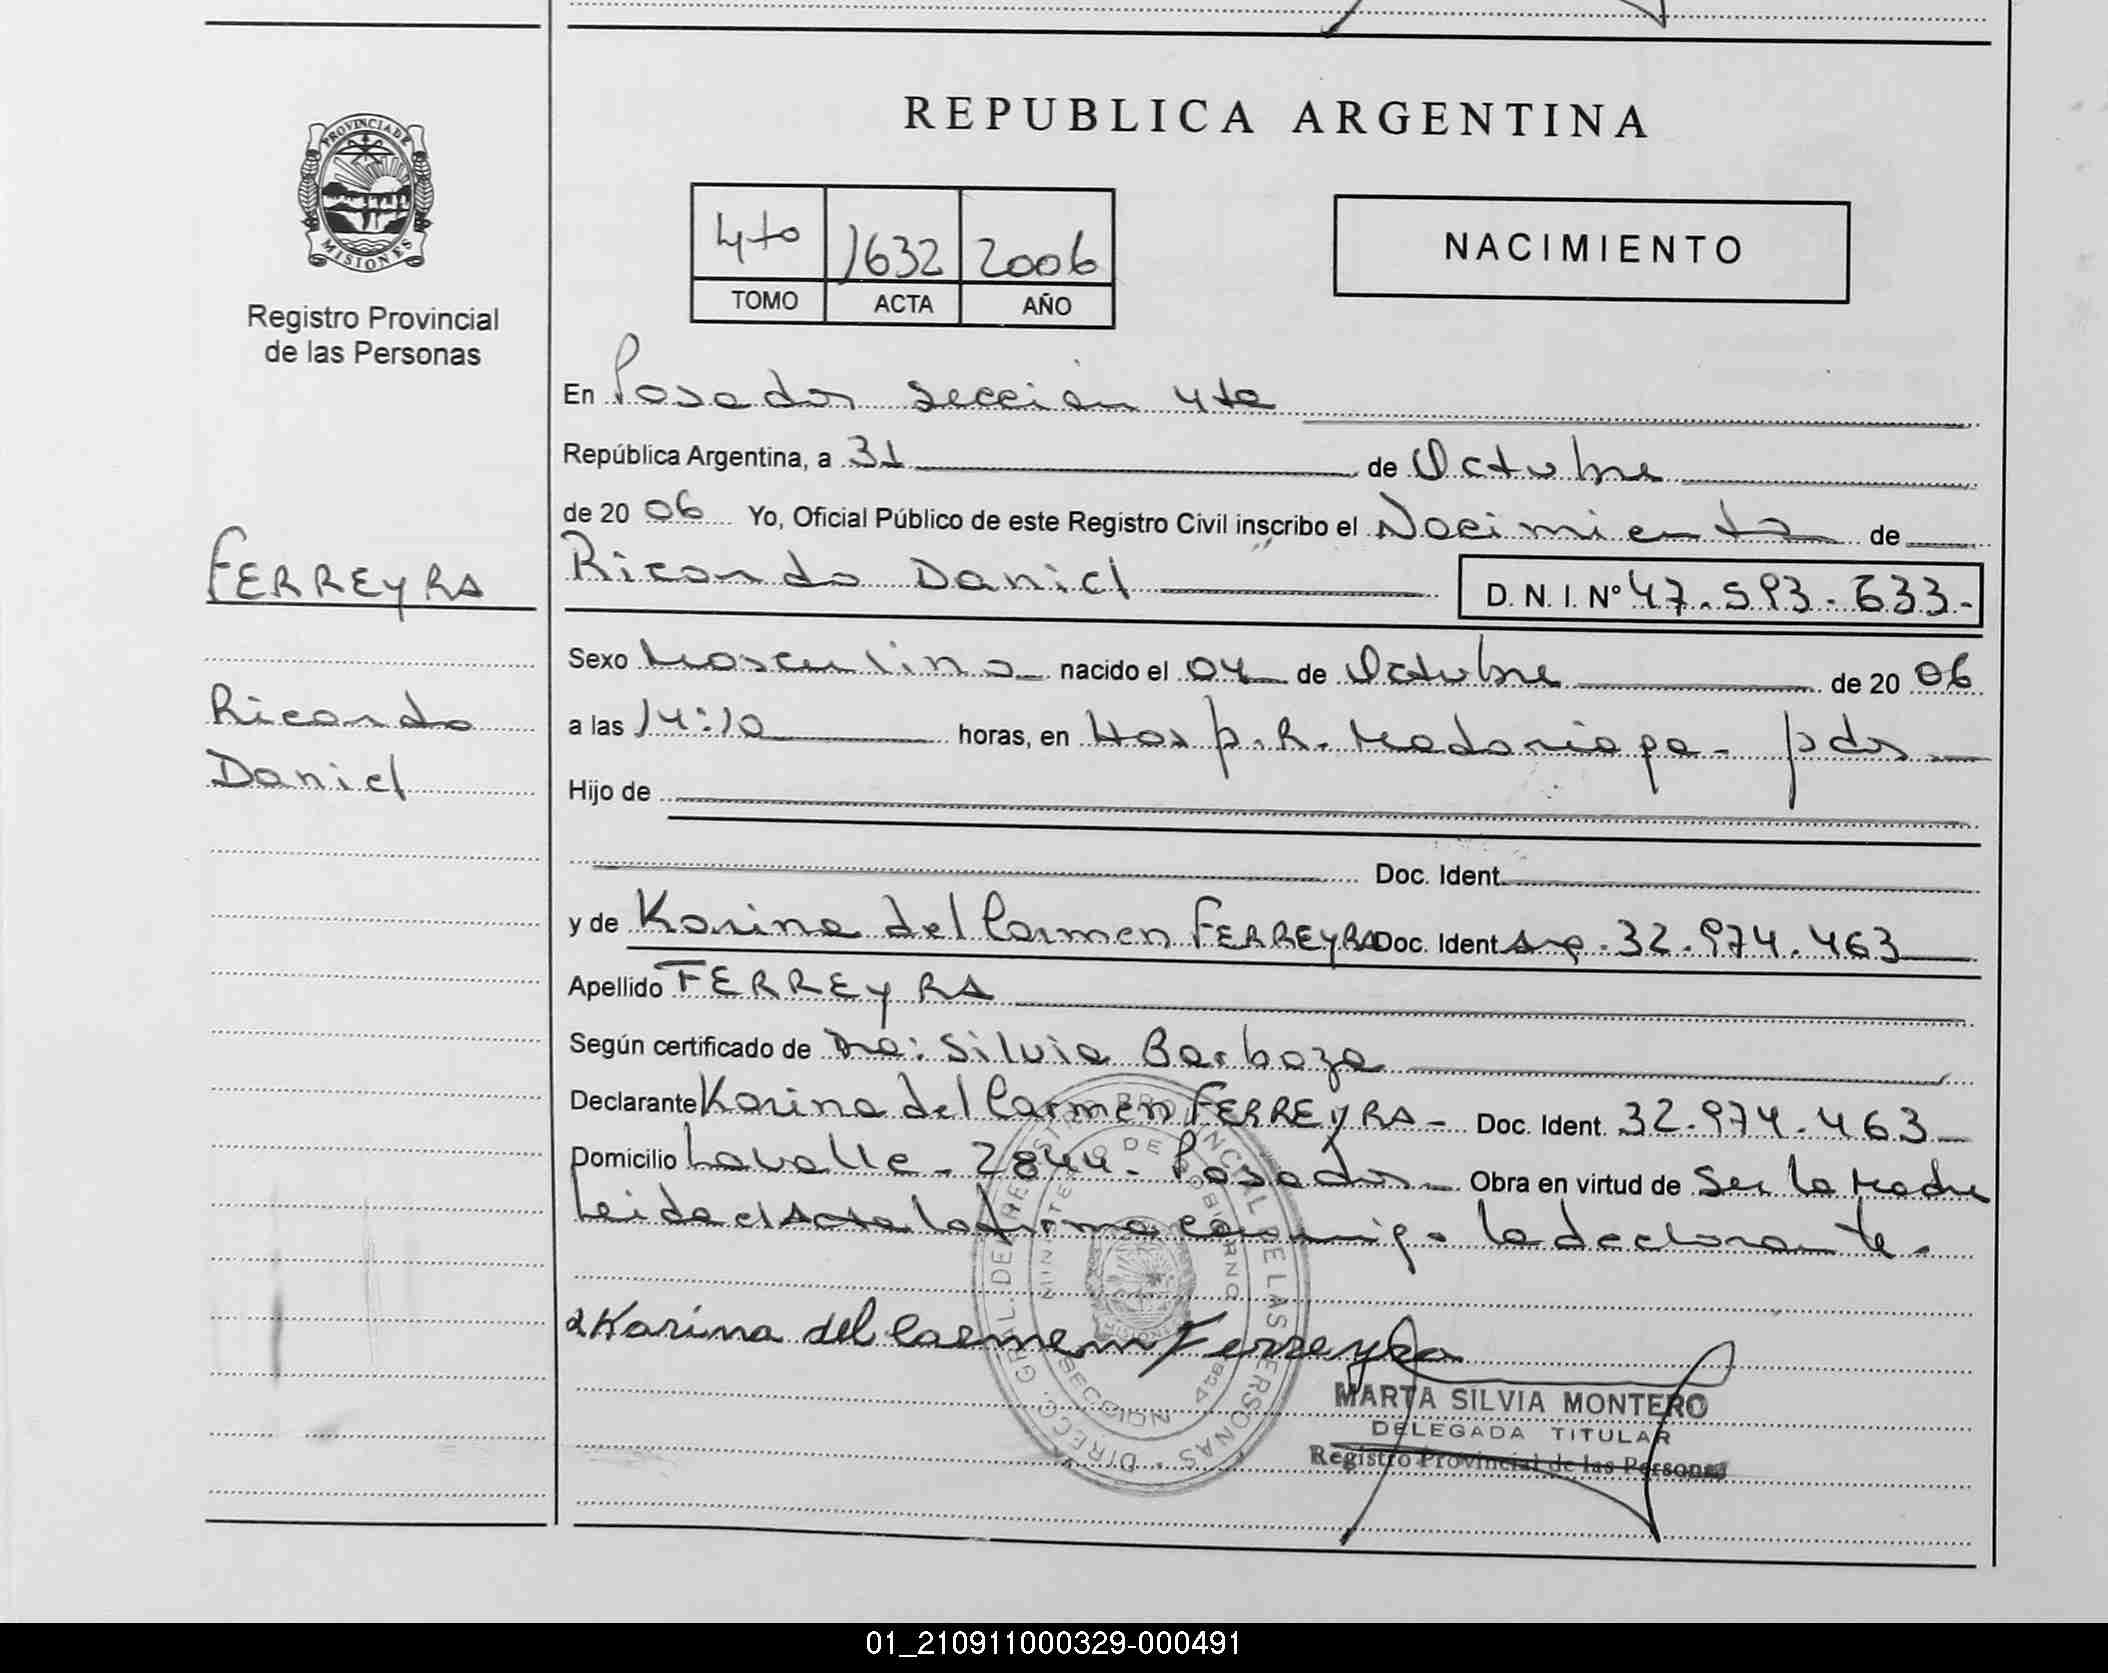 REPUBLICA ARGENTINA
PROVINCIA DE
MISIONES
Registro Provincial
de las Personas
4to 1632 2006
TOMO ACTA AÑO
NACIMIENTO
En Posadas sección 4ta
República Argentina, a 31 de Octubre
de 20 06 Yo, Oficial Público de este Registro Civil inscribo el Nacimiento de
FERREYRA
Ricardo Daniel D. N. I. Nº 47.593.633.-
Sexo Masculino nacido el 04 de Octubre de 20 06
Ricardo
a las 14:10 horas, en Hosp. R. Madariaga - pdas
Daniel
Hijo de
Doc. Ident.
y de Karina del Carmen FERREYRA Doc. Ident. arg. 32.974.463
Apellido FERREYRA
Según certificado de Dra: Silvia Barboza
Declarante Karina del Carmen FERREYRA - Doc. Ident. 32.974.463
Domicilio Lavalle - 2844 - Posadas - Obra en virtud de Ser la Madre
Leida el Acta la firma conmigo la declarante.
Karina del Carmem Ferreyra
DIRECC. GRAL. DEL REGISTRO PROVINCIAL DE LAS PERSONAS
MINISTERIO DE GOBIERNO
SECCION 4ta
MARTA SILVIA MONTERO
DELEGADA TITULAR
Registro Provincial de las Personas
01_210911000329-000491